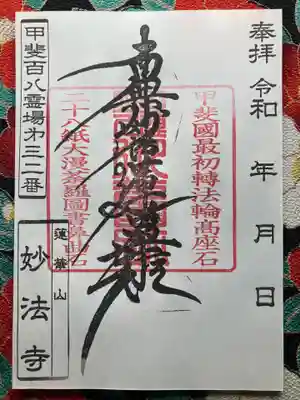 奉拝 令和 年 月 日
甲斐國最初轉法輪高座石
南無妙法蓮華経
二十八紙大漫荼羅圖書
甲斐百八霊場第三二番
蓮華山
妙法寺